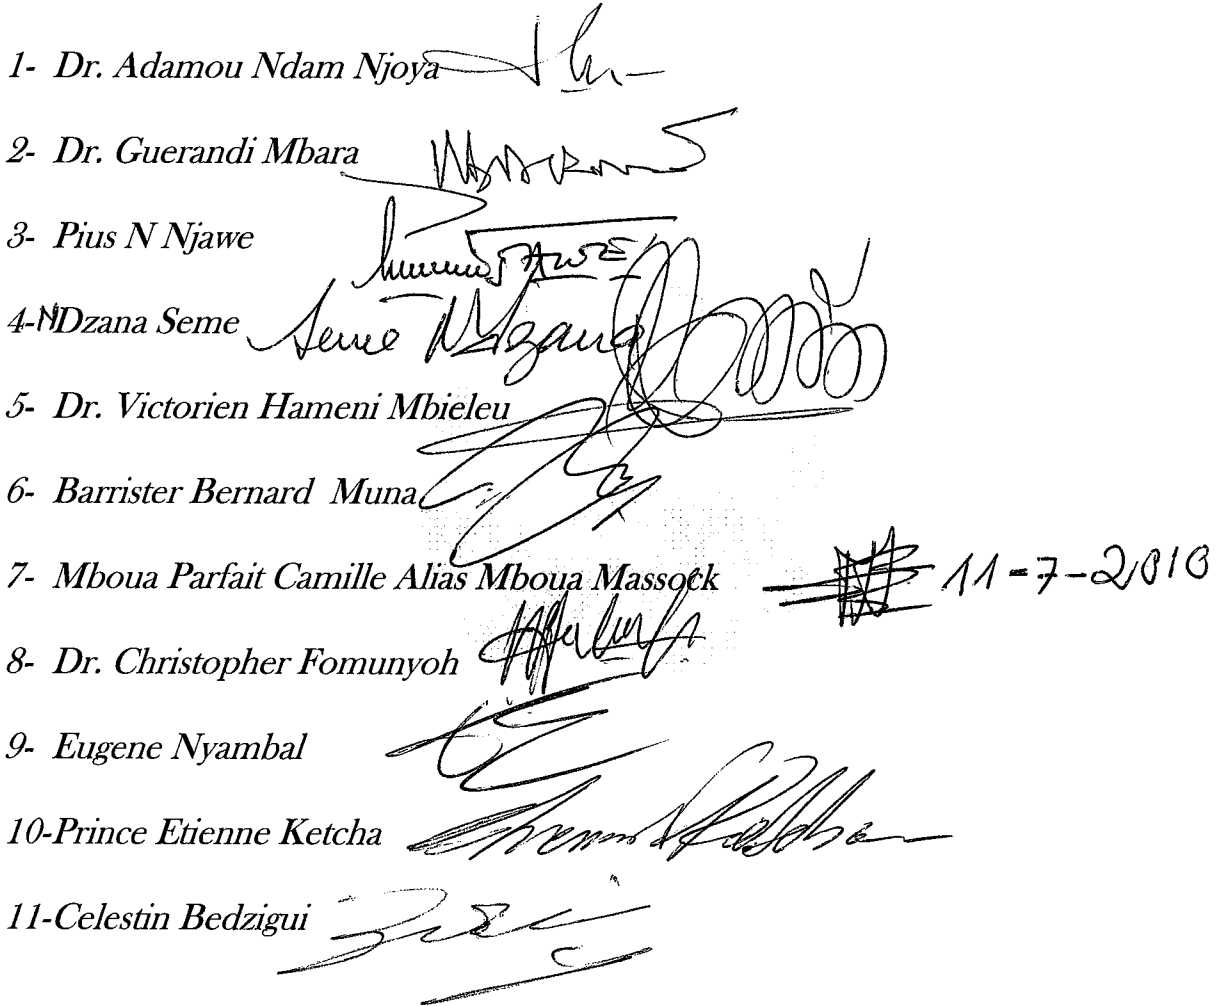 1- Dr. Adamou Ndam Njoya
2- Dr. Guerandi Mbara
3- Pius N Njawe
4-NDzana Seme Seme Ndzana
5- Dr. Victorien Hameni Mbieleu
6- Barrister Bernard Muna
7- Mboua Parfait Camille Alias Mboua Massock 11-7-2010
8- Dr. Christopher Fomunyoh
9- Eugene Nyambal
10-Prince Etienne Ketcha
11-Celestin Bedzigui